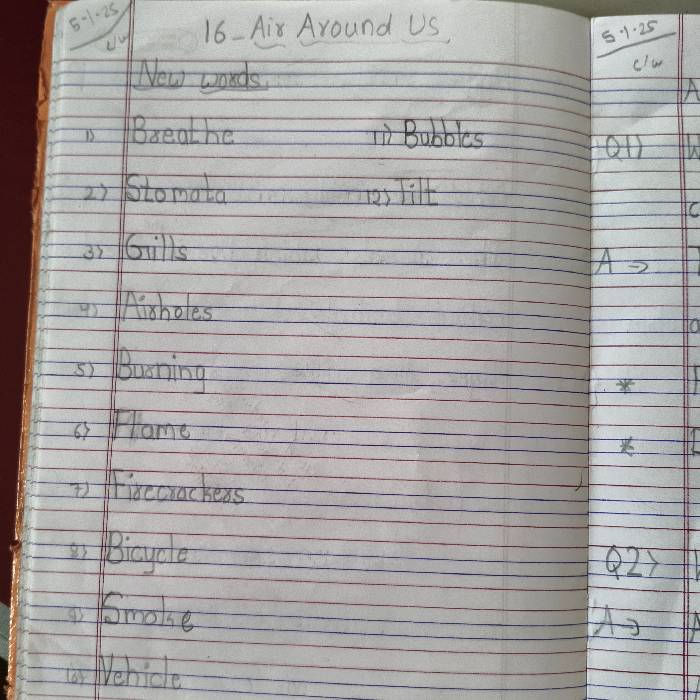 5-1-25
c/w
16-Air Around Us
New words
1) Breathe 11) Bubbles
2) Stomata 12) Tilt
3) Gills
4) Airholes
5) Burning
6) Flame
7) Firecrackers
8) Bicycle
9) Smoke
10) Vehicle
5-1-25
c/w
Q1)
A →
*
*
Q2)
A →